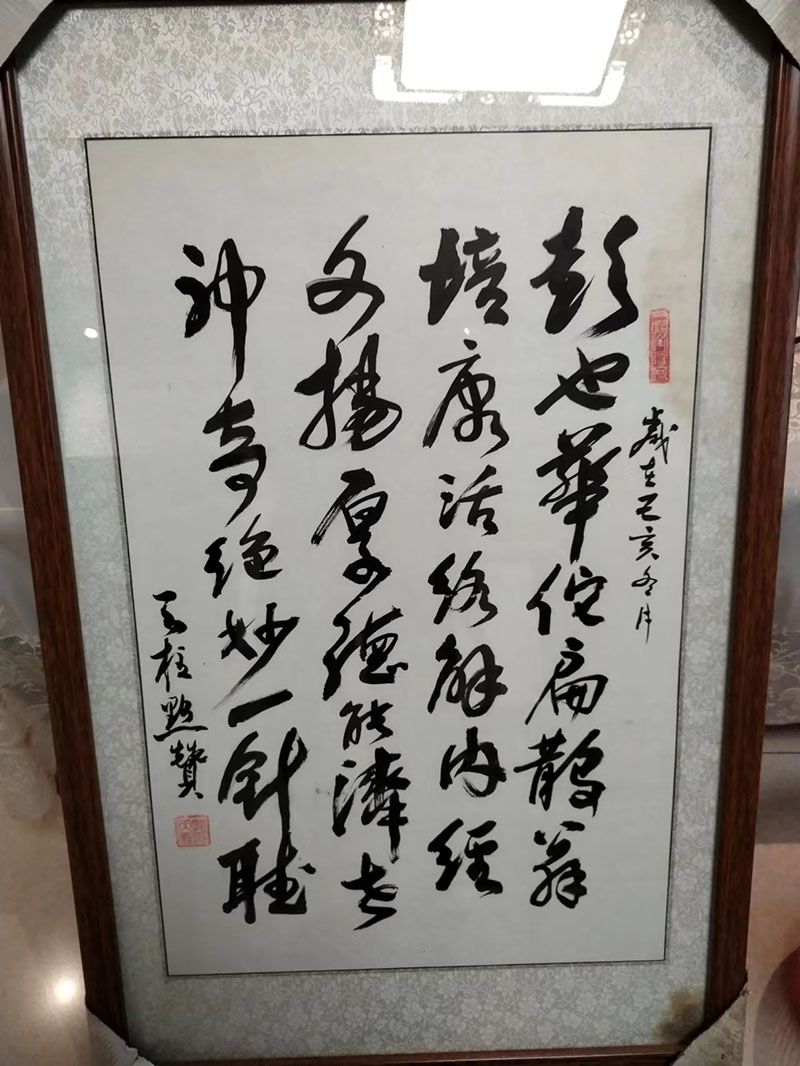 歲在己亥冬月
彭也華佗扁鵲翁
培康活絡解內經
文揚厚德能濟世
神奇絕妙一針
天柱點贊